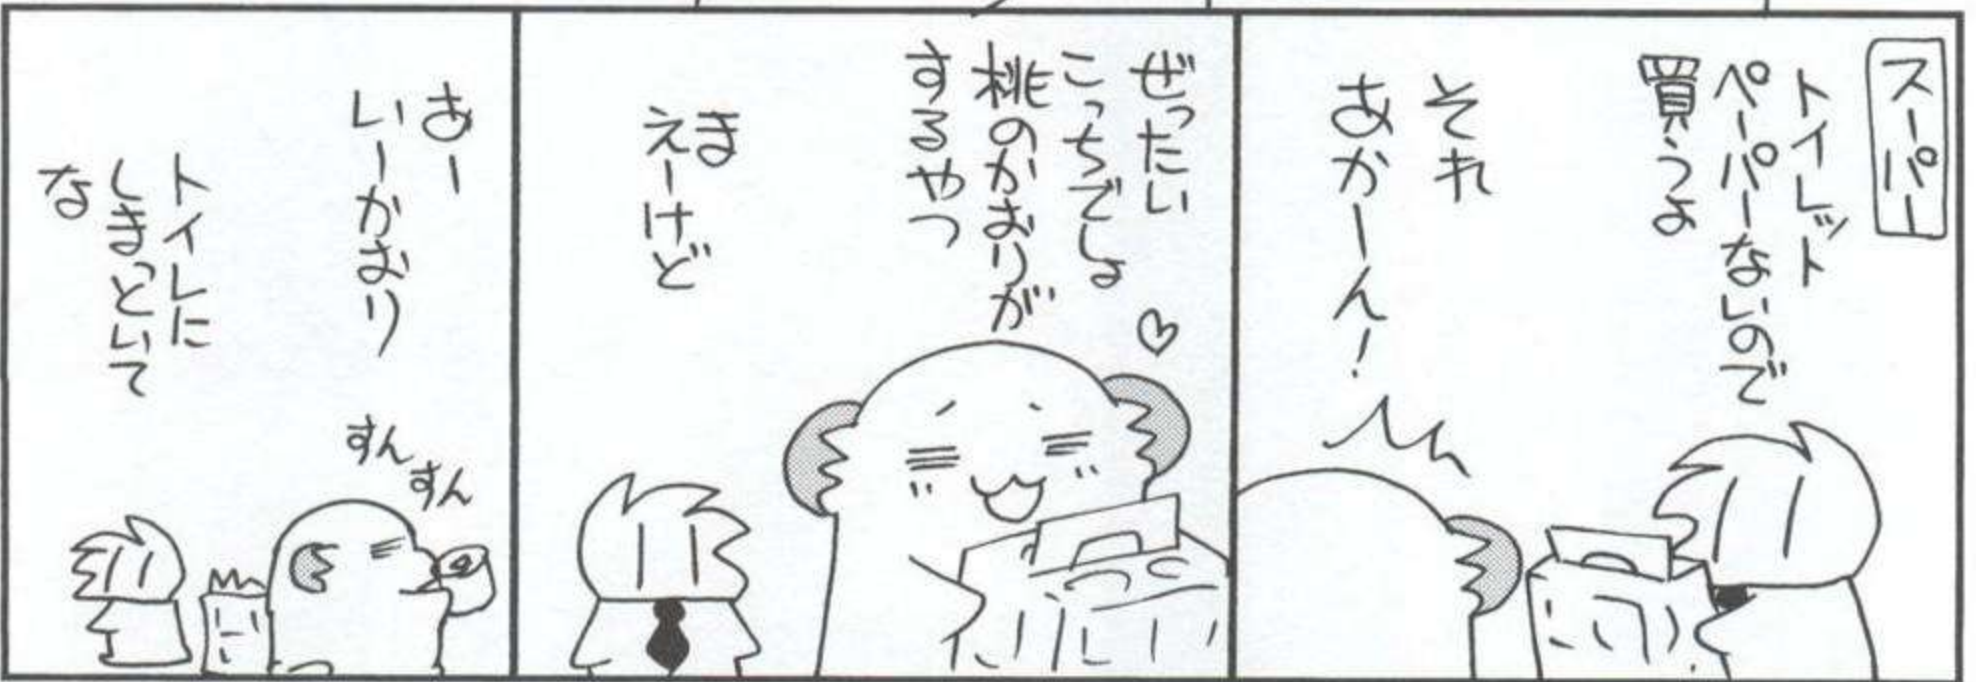 スーパー
トイレット
ペーパーないので
買うよ
それ
あかーん!
ぜったい
こっちでしょ♡
桃のかおりが
するやつ
ま
えーけど
あー
いーかおり
すん
すん
トイレに
しまっといて
な